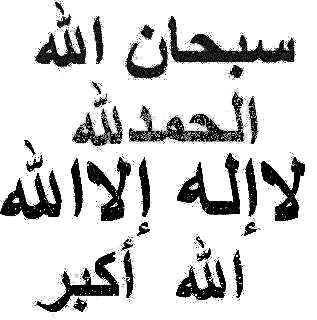 سبحان الله
الحمدلله
لاإله إلاالله
الله أكبر